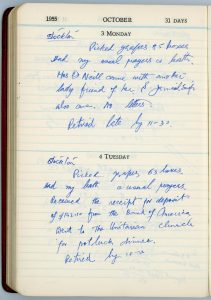 1955 OCTOBER 31 DAYS
3 MONDAY
Stockton
Picked grapes 85 boxes
Had my usual prayers & bath.
Mrs O'Neill came with another
lady friend of her &
also came. No letters.
Retired late by 11-30.
4 TUESDAY
Stockton
Picked grapes, 63 boxes.
Had my bath & usual prayers.
Received the receipt for deposit
of from the Bank of America
Went to the Unitarian church
for potluck dinner.
Retired by